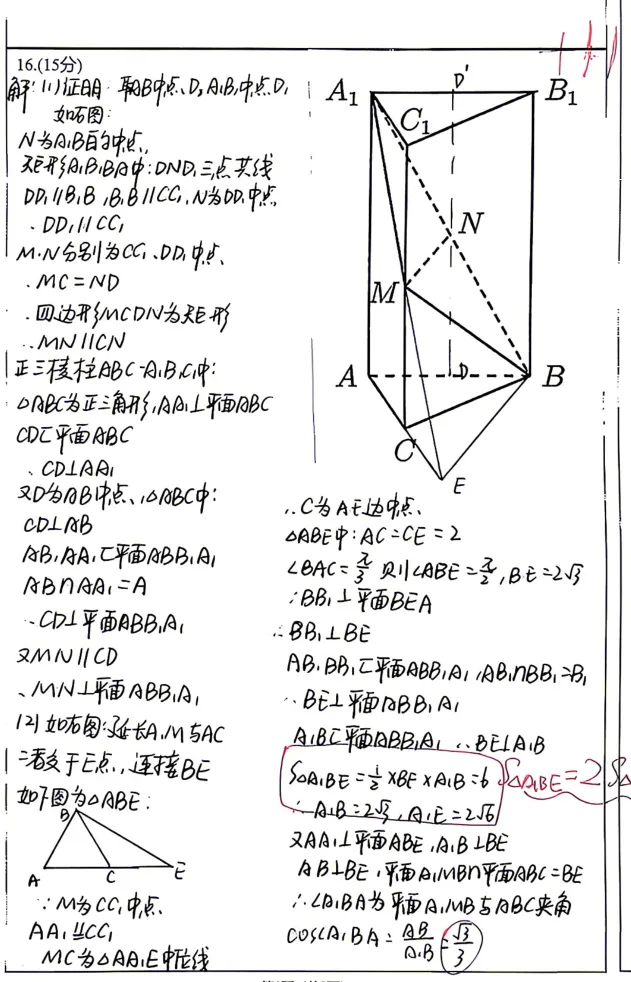 16.(15分)
解:(1)证明: 取AB中点、D,A₁B₁中点D₁
如右图:
N为A₁B的中点、
矩形A₁B₁BA中:DND₁三点共线
DD₁∥B₁B,B₁B∥CC₁,N为DD₁中点、
∴DD₁∥CC₁
M、N分别为CC₁、DD₁中点、
∴MC=ND
∴四边形MCDN为矩形
∴MN∥CN
正三棱柱ABC-A₁B₁C₁中:
△ABC为正三角形,AA₁⊥平面ABC
CD⊏平面ABC
∴CD⊥AA₁
又D为AB中点、,△ABC中:
CD⊥AB
AB,AA₁⊏平面ABB₁A₁
AB∩AA₁=A
∴CD⊥平面ABB₁A₁
又MN∥CD
∴MN⊥平面ABB₁A₁
(2)如右图:延长A₁M与AC
二者交于E点,连接BE
如下图为△ABE:
B
A C E
∵M为CC₁中点、
AA₁⫫CC₁
MC为△AA₁E中位线
A₁ D' B₁
C₁
N
M
A D B
C
E
∴C为AE边中点、
△ABE中:AC=CE=2
∠BAC=π/3 则∠ABE=π/2,BE=2√3
∵BB₁⊥平面BEA
∴BB₁⊥BE
AB,BB₁⊏平面ABB₁A₁,AB₁∩BB₁=B₁
∴BE⊥平面ABB₁A₁
A₁B⊏平面ABB₁A₁ ∴BE⊥A₁B
S△A₁BE=1/2×BE×A₁B=6 S△A₁BE=2S△
∴A₁B=2√3,A₁E=2√6
又AA₁⊥平面ABE,A₁B⊥BE
AB⊥BE,平面A₁MB∩平面ABC=BE
∴∠A₁BA为平面A₁MB与ABC夹角
cos∠A₁BA=AB/A₁B=√3/3